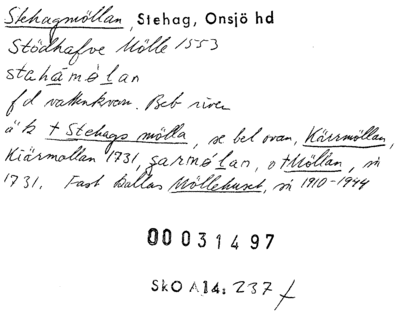 Stehagmöllan, Stehag, Onsjö hd
Stödhafve Mölle 1553
stahámólan
f d vattenkvarn. Beb riven
äv k † Stehags mölla, se bel ovan, Kärrmöllan,
Kiärmollan 1731, garmólan, o †Möllan, sń
1731. Fast kallas Möllehuset, sń 1910-1944
00031497
SkO A14: 237